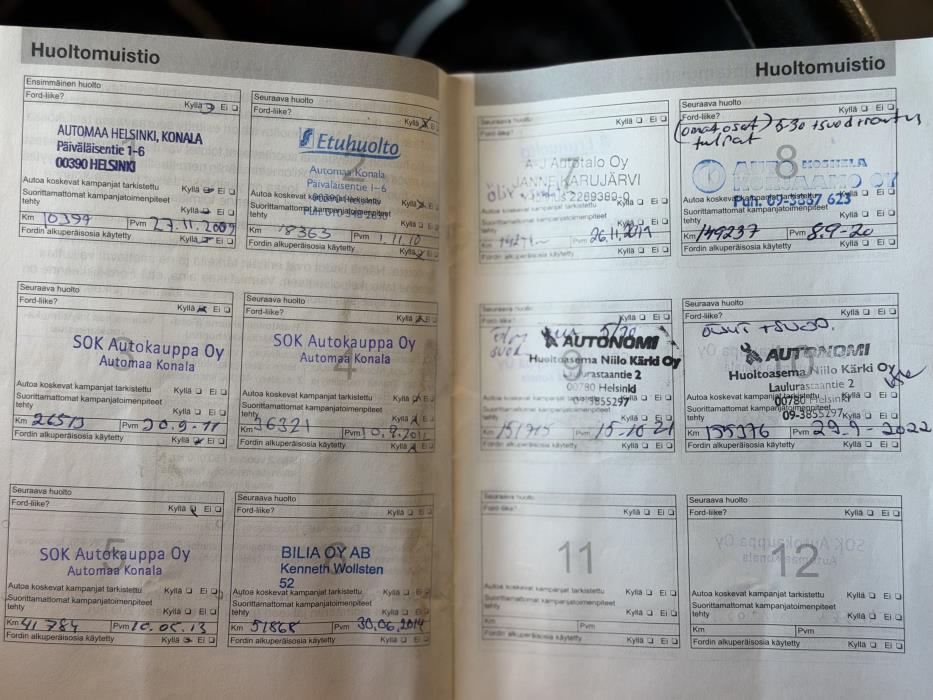 Huoltomuistio
Ensimmäinen huolto
Ford-liike?
Kyllä Ei
AUTOMAA HELSINKI, KONALA
Päiväläisentie 1-6
00390 HELSINKI
Autoa koskevat kampanjat tarkistettu Kyllä Ei
Suorittamattomat kampanjatoimenpiteet
tehty Kyllä Ei
Km 10397 Pvm 27.11.2009
Fordin alkuperäisosia käytetty Kyllä Ei
Seuraava huolto
Ford-liike?
Kyllä Ei
2
Etuhuolto
Automaa Konala
Päiväläisentie 1-6
00390 Helsinki
Autoa koskevat kampanjat tarkistettu Kyllä
Suorittamattomat kampanjatoimenpiteet
tehty Kyllä
Km 18363 Pvm 1.11.10
Fordin alkuperäisosia käytetty Kyllä
Seuraava huolto
Ford-liike?
Kyllä Ei
3
SOK Autokauppa Oy
Automaa Konala
Autoa koskevat kampanjat tarkistettu Kyllä Ei
Suorittamattomat kampanjatoimenpiteet
tehty Kyllä Ei
Km 26513 Pvm 20.9.11
Fordin alkuperäisosia käytetty Kyllä Ei
Seuraava huolto
Ford-liike?
Kyllä Ei
4
SOK Autokauppa Oy
Automaa Konala
Autoa koskevat kampanjat tarkistettu Kyllä Ei
Suorittamattomat kampanjatoimenpiteet
tehty Kyllä Ei
Km 36321 Pvm
Fordin alkuperäisosia käytetty Kyllä Ei
Seuraava huolto
Ford-liike?
Kyllä Ei
5
SOK Autokauppa Oy
Automaa Konala
Autoa koskevat kampanjat tarkistettu Kyllä Ei
Suorittamattomat kampanjatoimenpiteet
tehty Kyllä Ei
Km 41784 Pvm 16.05.13
Fordin alkuperäisosia käytetty Kyllä Ei
Seuraava huolto
Ford-liike?
Kyllä Ei
BILIA OY AB
Kenneth Wollsten
52
Autoa koskevat kampanjat tarkistettu Kyllä Ei
Suorittamattomat kampanjatoimenpiteet
tehty Kyllä Ei
Km 51868 Pvm 30.06.2014
Fordin alkuperäisosia käytetty Kyllä Ei
Huoltomuistio
Seuraava huolto
Ford-liike?
Kyllä Ei
7
A-J Autotalo Oy
JANNE KARUJÄRVI
Autoa koskevat kampanjat tarkistettu Kyllä Ei
Suorittamattomat kampanjatoimenpiteet
tehty Kyllä Ei
Km Pvm 26.11.2019
Fordin alkuperäisosia käytetty Kyllä Ei
Seuraava huolto
Ford-liike?
Kyllä Ei
(omat osat) 5-30 + suodmaatus
tulpat
8
Puh. 09-3887 623
Autoa koskevat kampanjat tarkistettu Kyllä Ei
Suorittamattomat kampanjatoimenpiteet
tehty Kyllä Ei
Km 149237 Pvm 8.9-20
Fordin alkuperäisosia käytetty Kyllä Ei
Seuraava huolto
Ford-liike?
Kyllä Ei
9
AUTONOMI
Huoltoasema Niilo Kärki Oy
Laulurastaantie 2
00780 Helsinki
3855297
Autoa koskevat kampanjat tarkistettu Kyllä Ei
Suorittamattomat kampanjatoimenpiteet
tehty Kyllä Ei
Km 151915 Pvm 15-10-21
Fordin alkuperäisosia käytetty Kyllä Ei
Seuraava huolto
Ford-liike?
Kyllä Ei
AUTONOMI
Huoltoasema Niilo Kärki Oy
Laulurastaantie 2
00780 Helsinki
09-3855297
Autoa koskevat kampanjat tarkistettu Kyllä Ei
Suorittamattomat kampanjatoimenpiteet
tehty Kyllä Ei
Km 155376 Pvm 29.9-2022
Fordin alkuperäisosia käytetty Kyllä Ei
Seuraava huolto
Ford-liike?
Kyllä Ei
11
Autoa koskevat kampanjat tarkistettu Kyllä Ei
Suorittamattomat kampanjatoimenpiteet
tehty Kyllä Ei
Km Pvm
Fordin alkuperäisosia käytetty Kyllä Ei
Seuraava huolto
Ford-liike?
Kyllä Ei
12
Autoa koskevat kampanjat tarkistettu Kyllä Ei
Suorittamattomat kampanjatoimenpiteet
tehty Kyllä Ei
Km Pvm
Fordin alkuperäisosia käytetty Kyllä Ei